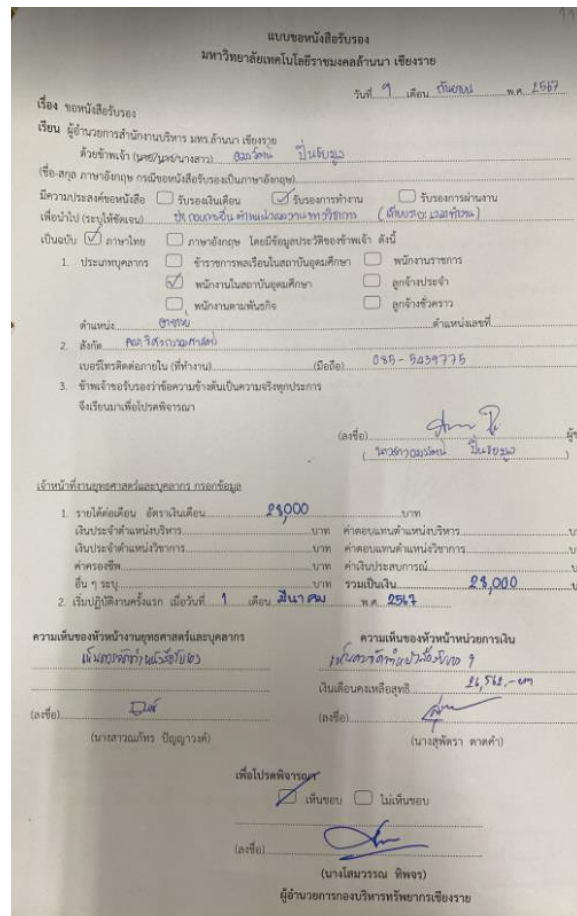 แบบขอหนังสือรับรอง
มหาวิทยาลัยเทคโนโลยีราชมงคลล้านนา เชียงราย
วันที่ 9 เดือน กันยายน พ.ศ. 2567
เรื่อง ขอหนังสือรับรอง
เรียน ผู้อำนวยการสำนักงานบริหาร มทร.ล้านนา เชียงราย
ด้วยข้าพเจ้า (นาย/นาง/นางสาว)
(ชื่อ-สกุล ภาษาอังกฤษ กรณีขอหนังสือรับรองเป็นภาษาอังกฤษ)
มีความประสงค์ขอหนังสือ รับรองเงินเดือน รับรองการทำงาน รับรองการผ่านงาน
เพื่อนำไป (ระบุให้ชัดเจน) ประกอบการยื่น
เป็นฉบับ ภาษาไทย ภาษาอังกฤษ โดยมีข้อมูลประวัติของข้าพเจ้า ดังนี้
1. ประเภทบุคลากร ข้าราชการพลเรือนในสถาบันอุดมศึกษา พนักงานราชการ
พนักงานในสถาบันอุดมศึกษา ลูกจ้างประจำ
พนักงานตามพันธกิจ ลูกจ้างชั่วคราว
ตำแหน่ง อาจารย์ ตำแหน่งเลขที่
2. สังกัด คณะวิศวกรรมศาสตร์
เบอร์โทรติดต่อภายใน (ที่ทำงาน) (มือถือ) 085-5439775
3. ข้าพเจ้าขอรับรองว่าข้อความข้างต้นเป็นความจริงทุกประการ
จึงเรียนมาเพื่อโปรดพิจารณา
(ลงชื่อ)
เจ้าหน้าที่งานยุทธศาสตร์และบุคลากร กรอกข้อมูล
1. รายได้ต่อเดือน อัตราเงินเดือน 28,000 บาท
เงินประจำตำแหน่งบริหาร บาท ค่าตอบแทนตำแหน่งบริหาร
เงินประจำตำแหน่งวิชาการ บาท ค่าตอบแทนตำแหน่งวิชาการ
ค่าครองชีพ บาท ค่าเงินประสบการณ์
อื่น ๆ ระบุ บาท รวมเป็นเงิน 28,000
2. เริ่มปฏิบัติงานครั้งแรก เมื่อวันที่ 1 เดือน มีนาคม พ.ศ. 2567
ความเห็นของหัวหน้างานยุทธศาสตร์และบุคลากร ความเห็นของหัวหน้าหน่วยการเงิน
เห็นควรจัดทำหนังสือรับรอง
เงินเดือนคงเหลือสุทธิ 26,562.-บาท
(ลงชื่อ) (ลงชื่อ)
(นางสาวณภัทร ปัญญาวงค์) (นางสุพัตรา ตาดคำ)
เพื่อโปรดพิจารณา
เห็นชอบ ไม่เห็นชอบ
(ลงชื่อ)
(นางโสมวรรณ ทิพจร)
ผู้อำนวยการกองบริหารทรัพยากรเชียงราย